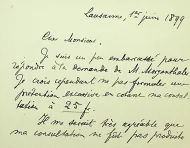 Lausanne, 1er juin 1899
Cher Monsieur.
Je suis un peu embarrassé pour
répondre à la demande de M. Morgenthaler
Je crois cependant ne pas formuler une
prétention excessive en cotant ma consul-
tation à 25 f.
Il me serait très agréable que
ma consultation ne fût pas produite